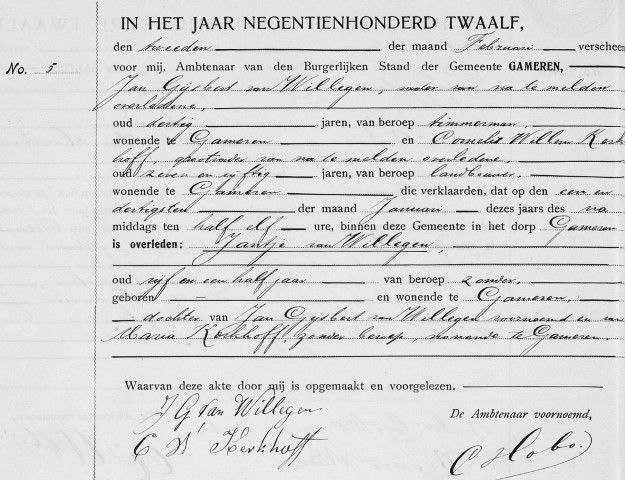 IN HET JAAR NEGENTIENHONDERD TWAALF,
den tweeden der maand Februari verscheen
No. 5 voor mij, Ambtenaar van den Burgerlijken Stand der Gemeente GAMEREN,
Jan Gijsbert van Willegen, vader van na te melden
overledene,
oud dertig jaren, van beroep timmerman,
wonende te Gameren en Cornelis Willem Kerk
hoff, grootvader van na te melden overledene,
oud zeven en vijftig jaren, van beroep landbouwer,
wonende te Gameren die verklaarden, dat op den een en
dertigsten der maand Januari dezes jaars des na
middags ten half elf ure, binnen deze Gemeente in het dorp Gameren
is overleden: Jantje van Willegen,
oud vijf en een half jaar van beroep zonder,
geboren — en wonende te Gameren,
dochter van Jan Gijsbert van Willegen voornoemd en van
Maria Kerkhoff, zonder beroep, wonende te Gameren.
Waarvan deze akte door mij is opgemaakt en voorgelezen.
J G. van Willegen
De Ambtenaar voornoemd,
C W Kerkhoff
C Hobo.